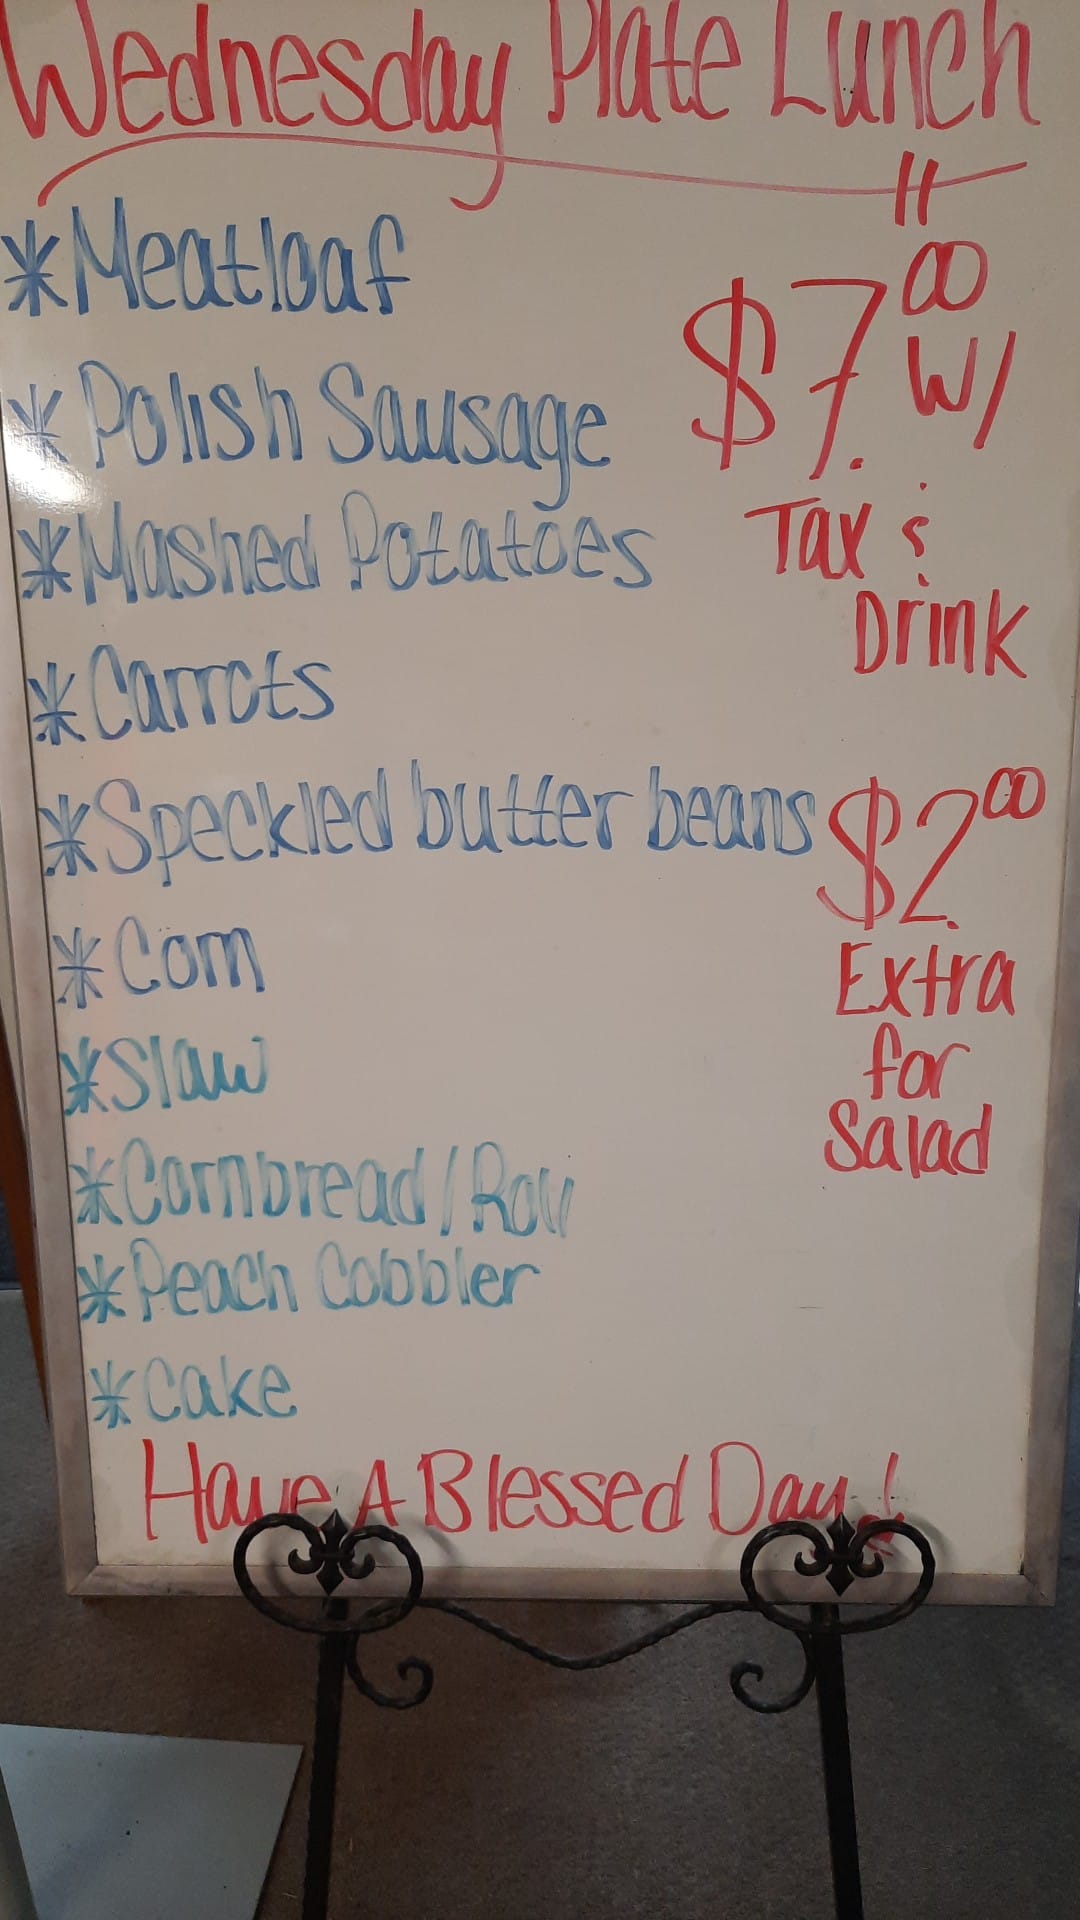 Wednesday Plate Lunch
"
*Meatloaf
$7.00 w/
*Polish Sausage
*Mashed Potatoes
Tax &
Drink
*Carrots
*Speckled butter beans
$2.00
*Corn
Extra
*Slaw
for
Salad
*Cornbread/Roll
*Peach Cobbler
*Cake
Have A Blessed Day!